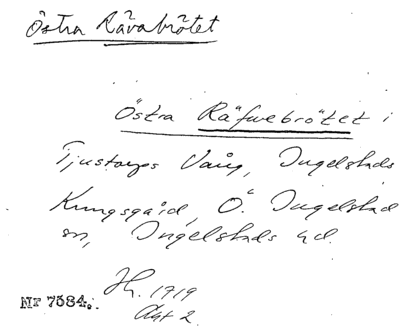 Östra Rävabrötet
Östra Räfwebrötet i
Tjustorps Vång, Ingelstads
Kungsgård, Ö. Ingelstad
sn, Ingelstads hd.
Hr. 1719
Akt 2
Nr 7584.